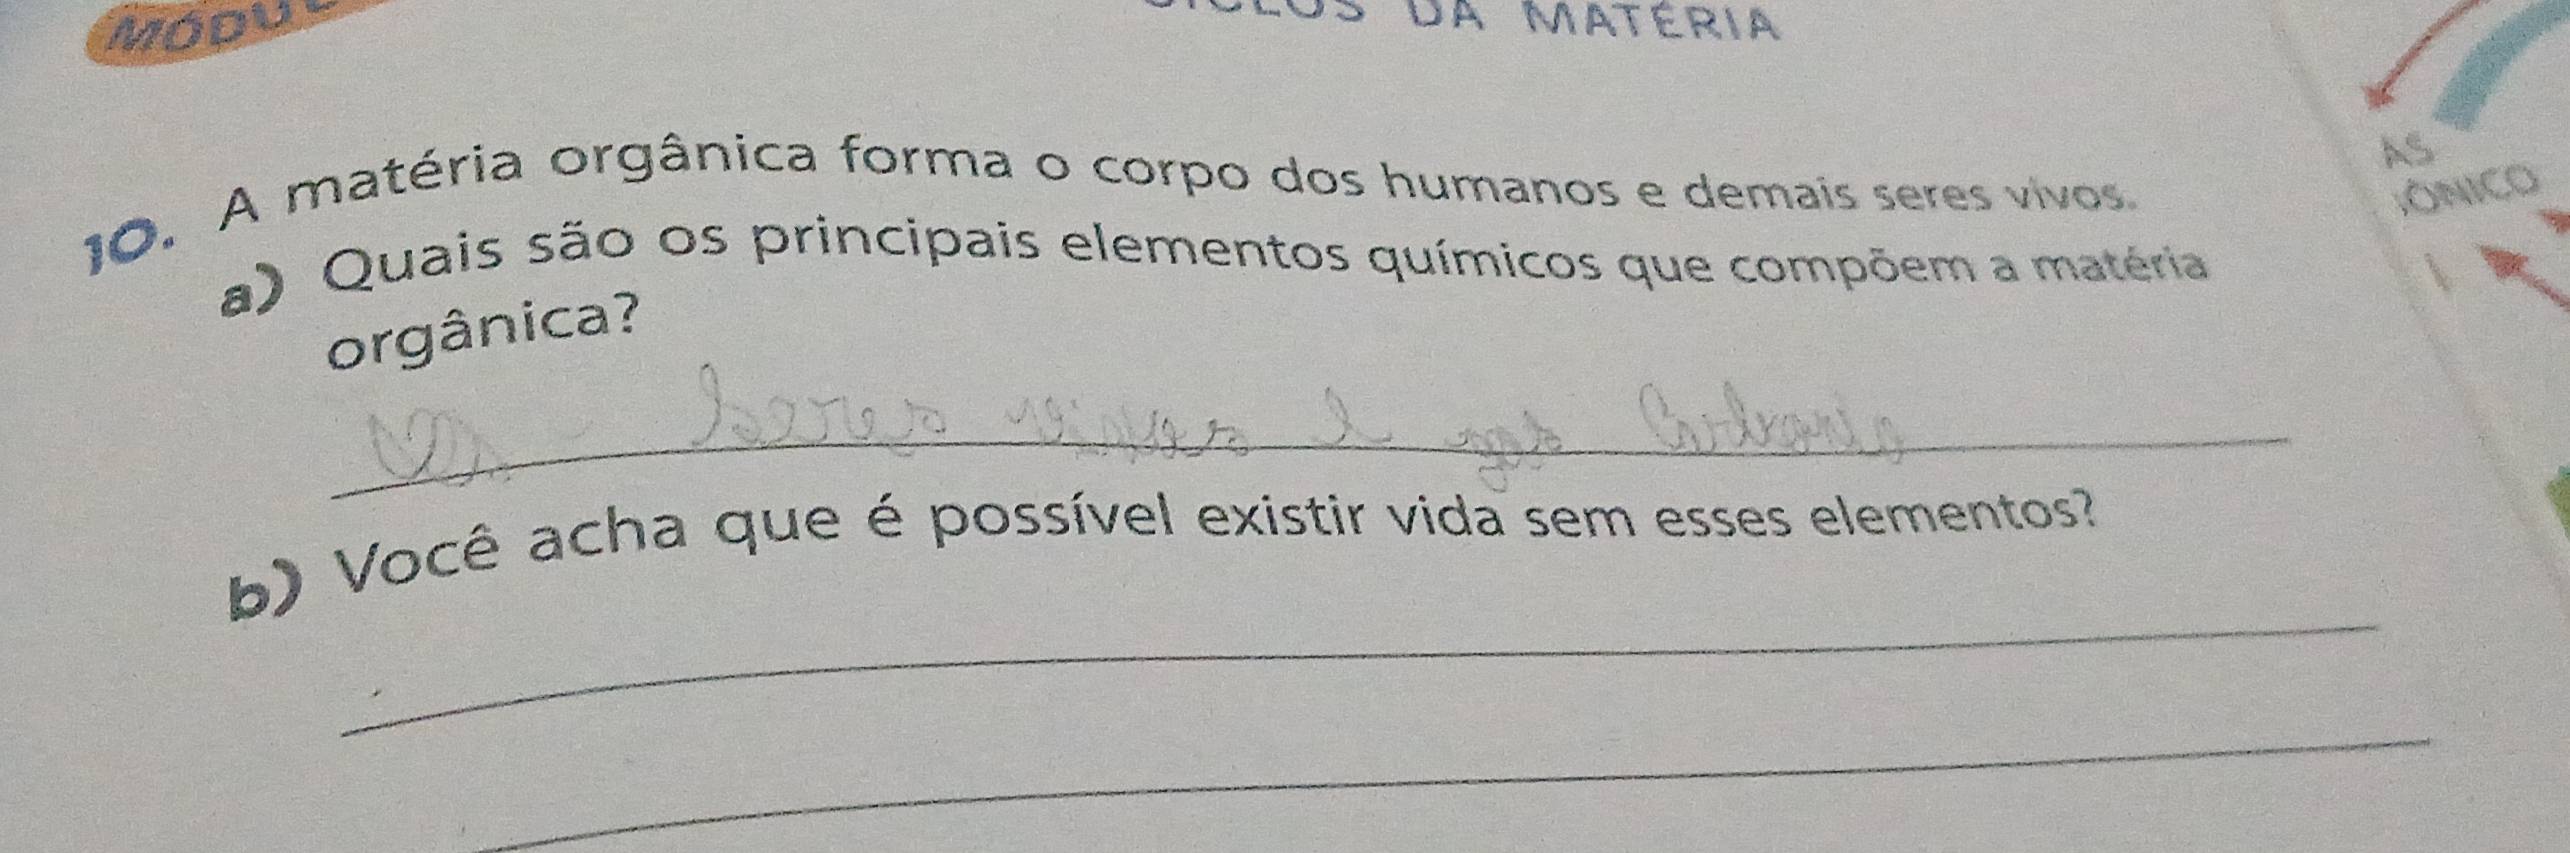 DA MATÉRIA
10. A matéria orgânica forma o corpo dos humanos e demais seres vivos.
a) Quais são os principais elementos químicos que compõem a matéria
orgânica?
seres vivos e gás
b) Você acha que é possível existir vida sem esses elementos?